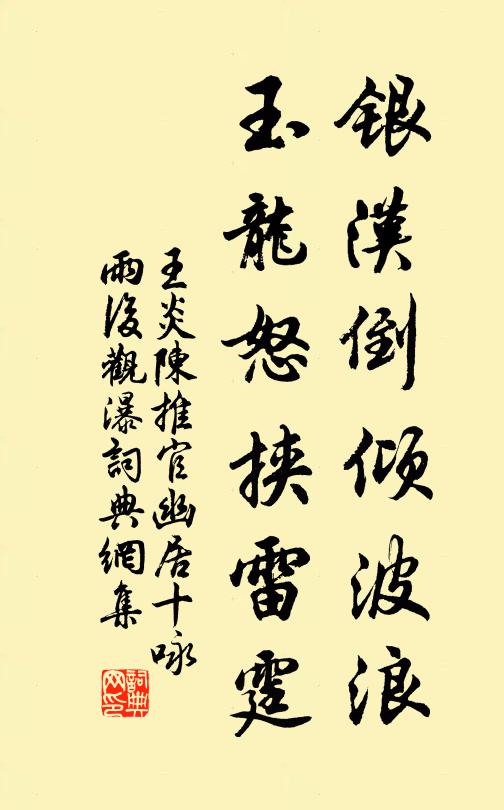 銀漢倒傾波浪
玉龍怒挾雷霆
王炎陳推官幽居十咏
雨後觀瀑詞典網集
詞典网印